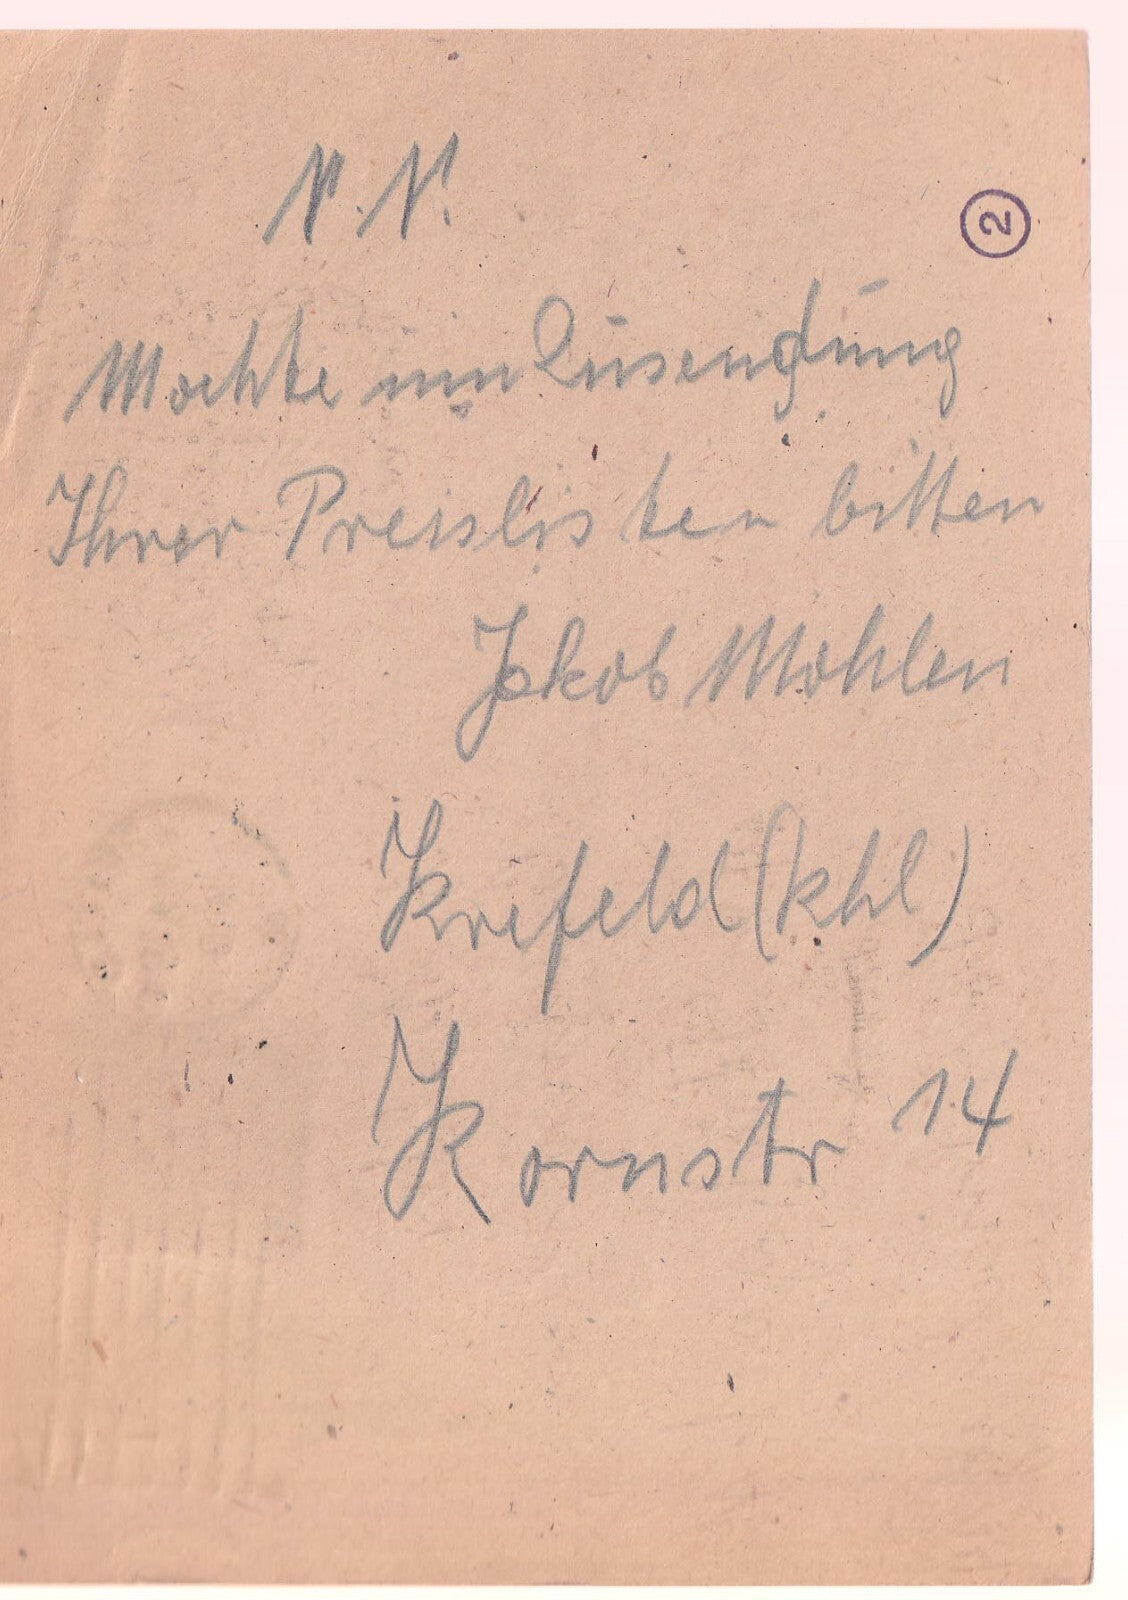 N.N.
2
Mochte um Zusendung
Ihrer Preislisten bitten
Jakob Mohlen
Krefeld (khl)
Kornstr 14